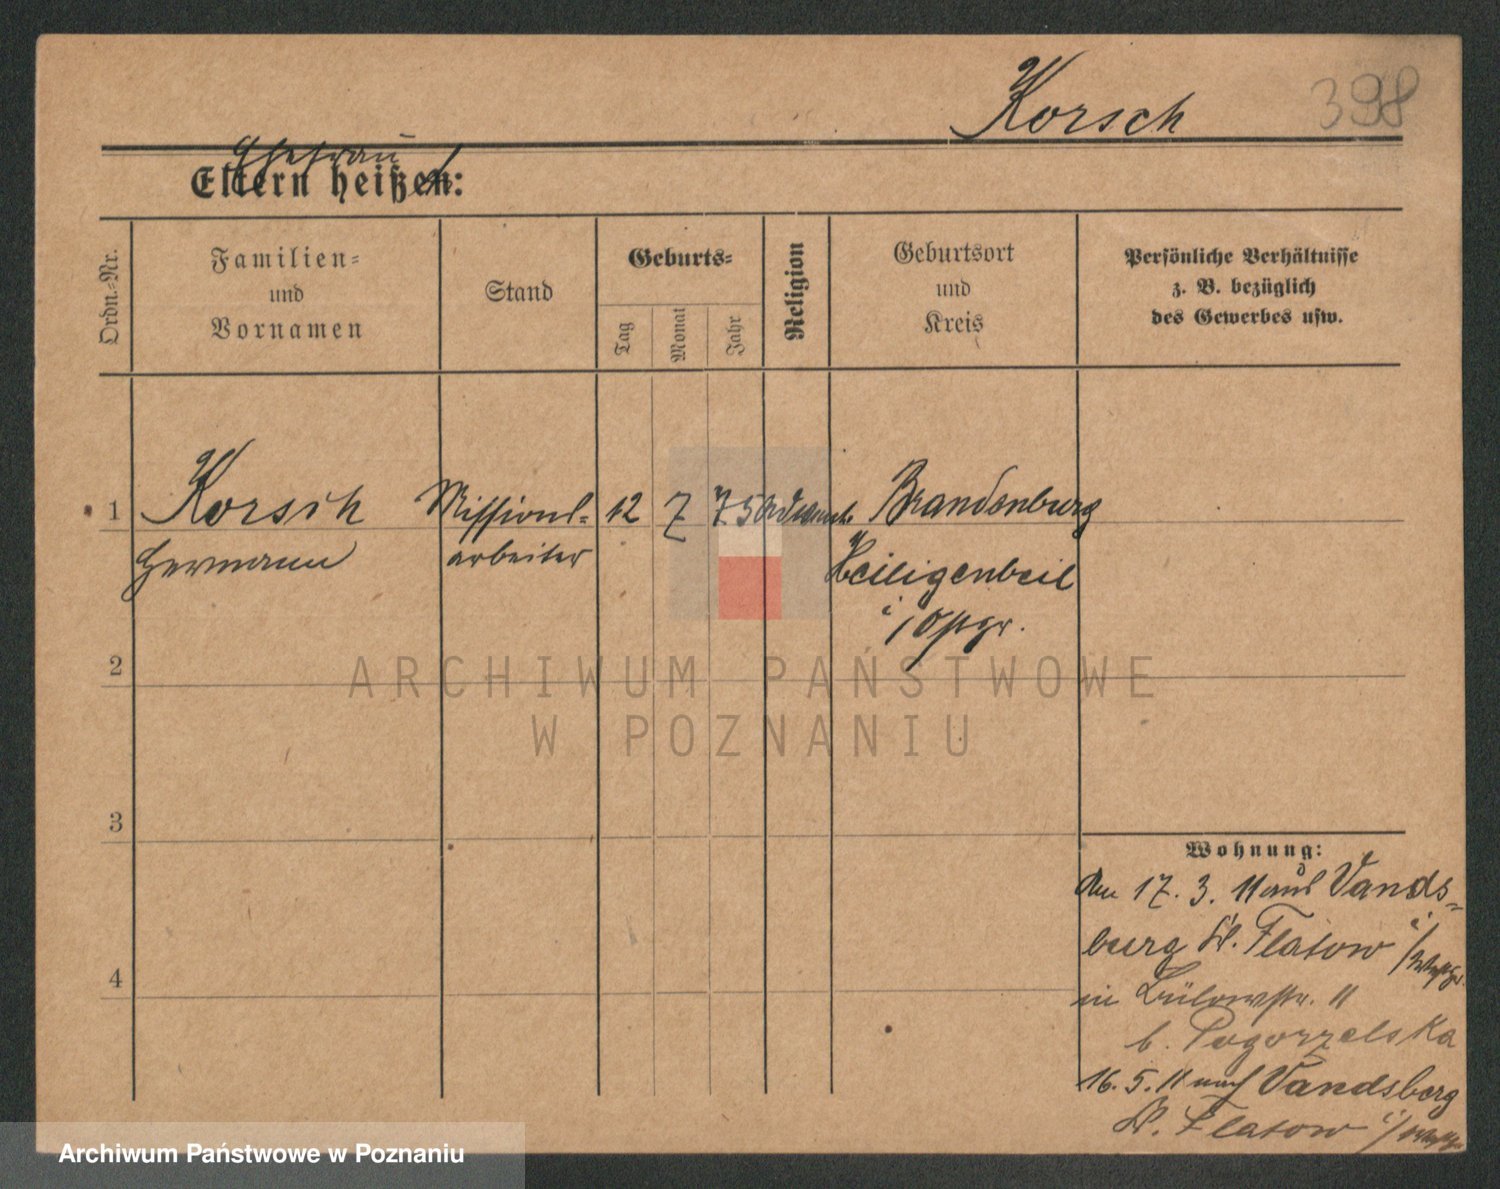 Korsch
398
Ehefrau
Eltern heißen:
Ordn.-Nr.
Familien-
und
Vornamen
Stand
Geburts-
Tag
Monat
Jahr
Religion
Geburtsort
und
Kreis
Persönliche Verhältnisse
z. B. bezüglich
des Gewerbes usw.
1 Korsch Missions- 12 7 75 Brandenburg
Hermann arbeiter Heiligenbeil
i/Ospr.
2
3
4
Wohnung:
Am 17. 3. 11 aus Vands-
burg Kr. Flatow i/Westpr.
in Bülowstr. 11
b. Pogorzelska
16. 5. 11 nach Vandsburg
Kr. Flatow i/Westpr.
ARCHIWUM PAŃSTWOWE
W POZNANIU
Archiwum Państwowe w Poznaniu